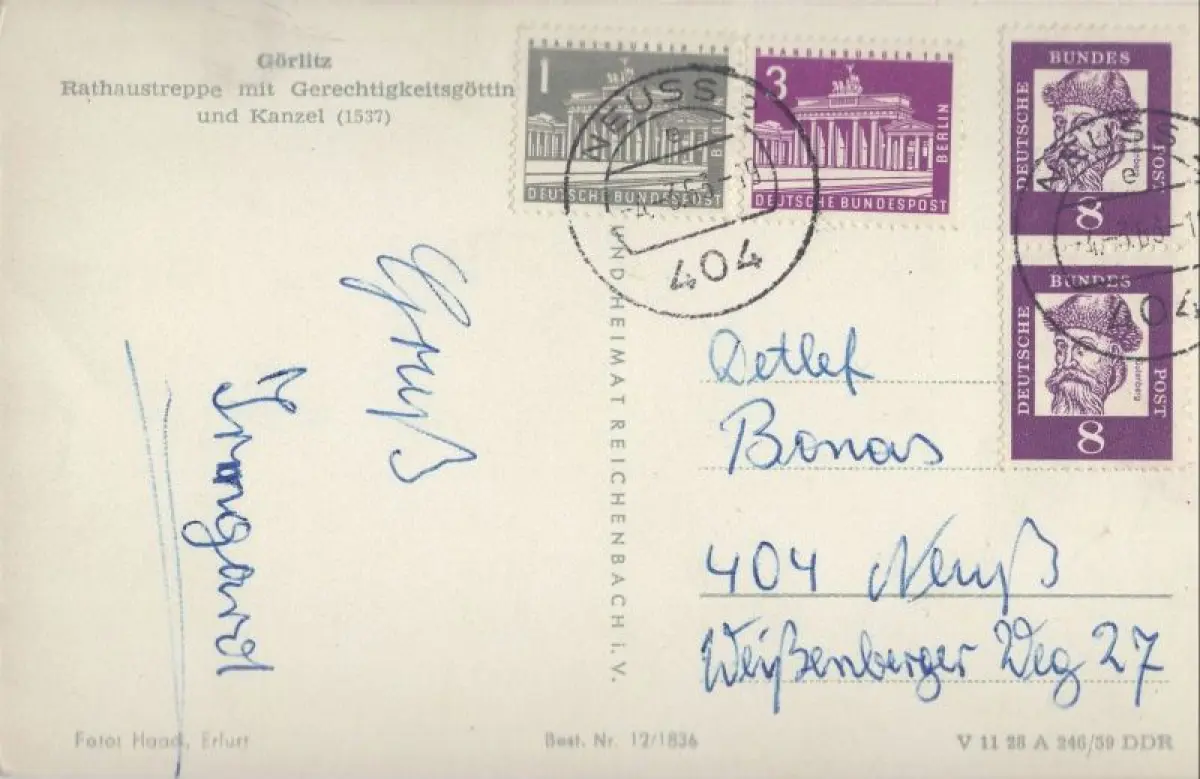 Görlitz
Rathaustreppe mit Gerechtigkeitsgöttin
und Kanzel (1537)
BRANDENBURGER TOR
1
BERLIN
DEUTSCHE BUNDESPOST
BRANDENBURGER TOR
3
BERLIN
DEUTSCHE BUNDESPOST
NEUSS
e
404
DEUTSCHE BUNDES POST
8
NEUSS
e
404
DEUTSCHE BUNDES POST
Gutenberg
8
Gruß
Irmgard
UND HEIMAT REICHENBACH i. V.
Detlef
Bonas
404 Neuß
Weißenberger Weg 27
Foto: Erfurt
Best. Nr. 12/1836
V 11 28 A 246/59 DDR